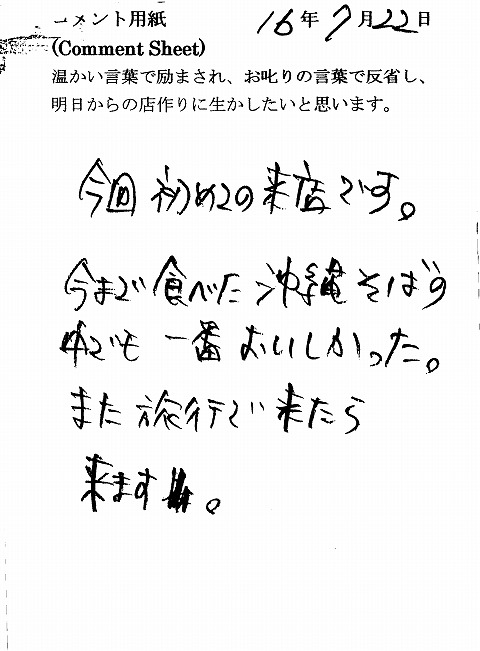 コメント用紙 16年7月22日
(Comment Sheet)
温かい言葉で励まされ、お叱りの言葉で反省し、
明日からの店作りに生かしたいと思います。
今回初めての来店です。
今まで食べた沖縄そばの
中でも一番おいしかった。
また旅行で来たら
来ます。